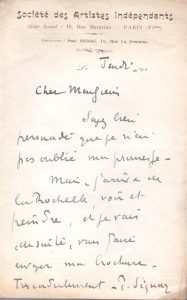 Société des Artistes Indépendants
Siège Social : 18, Rue — PARIS (VIme)
Président : Paul SIGNAC, 14, Rue La Fontaine
Le Jeudi
Cher Manguin
Soyez bien
persuadé que je n'ai
pas oublié ma promesse.
Mais j'arrive de
La Rochelle, voir et
peindre, et je vais
de suite, vous faire
envoyer ma brochure.
Très cordialement P. Signac